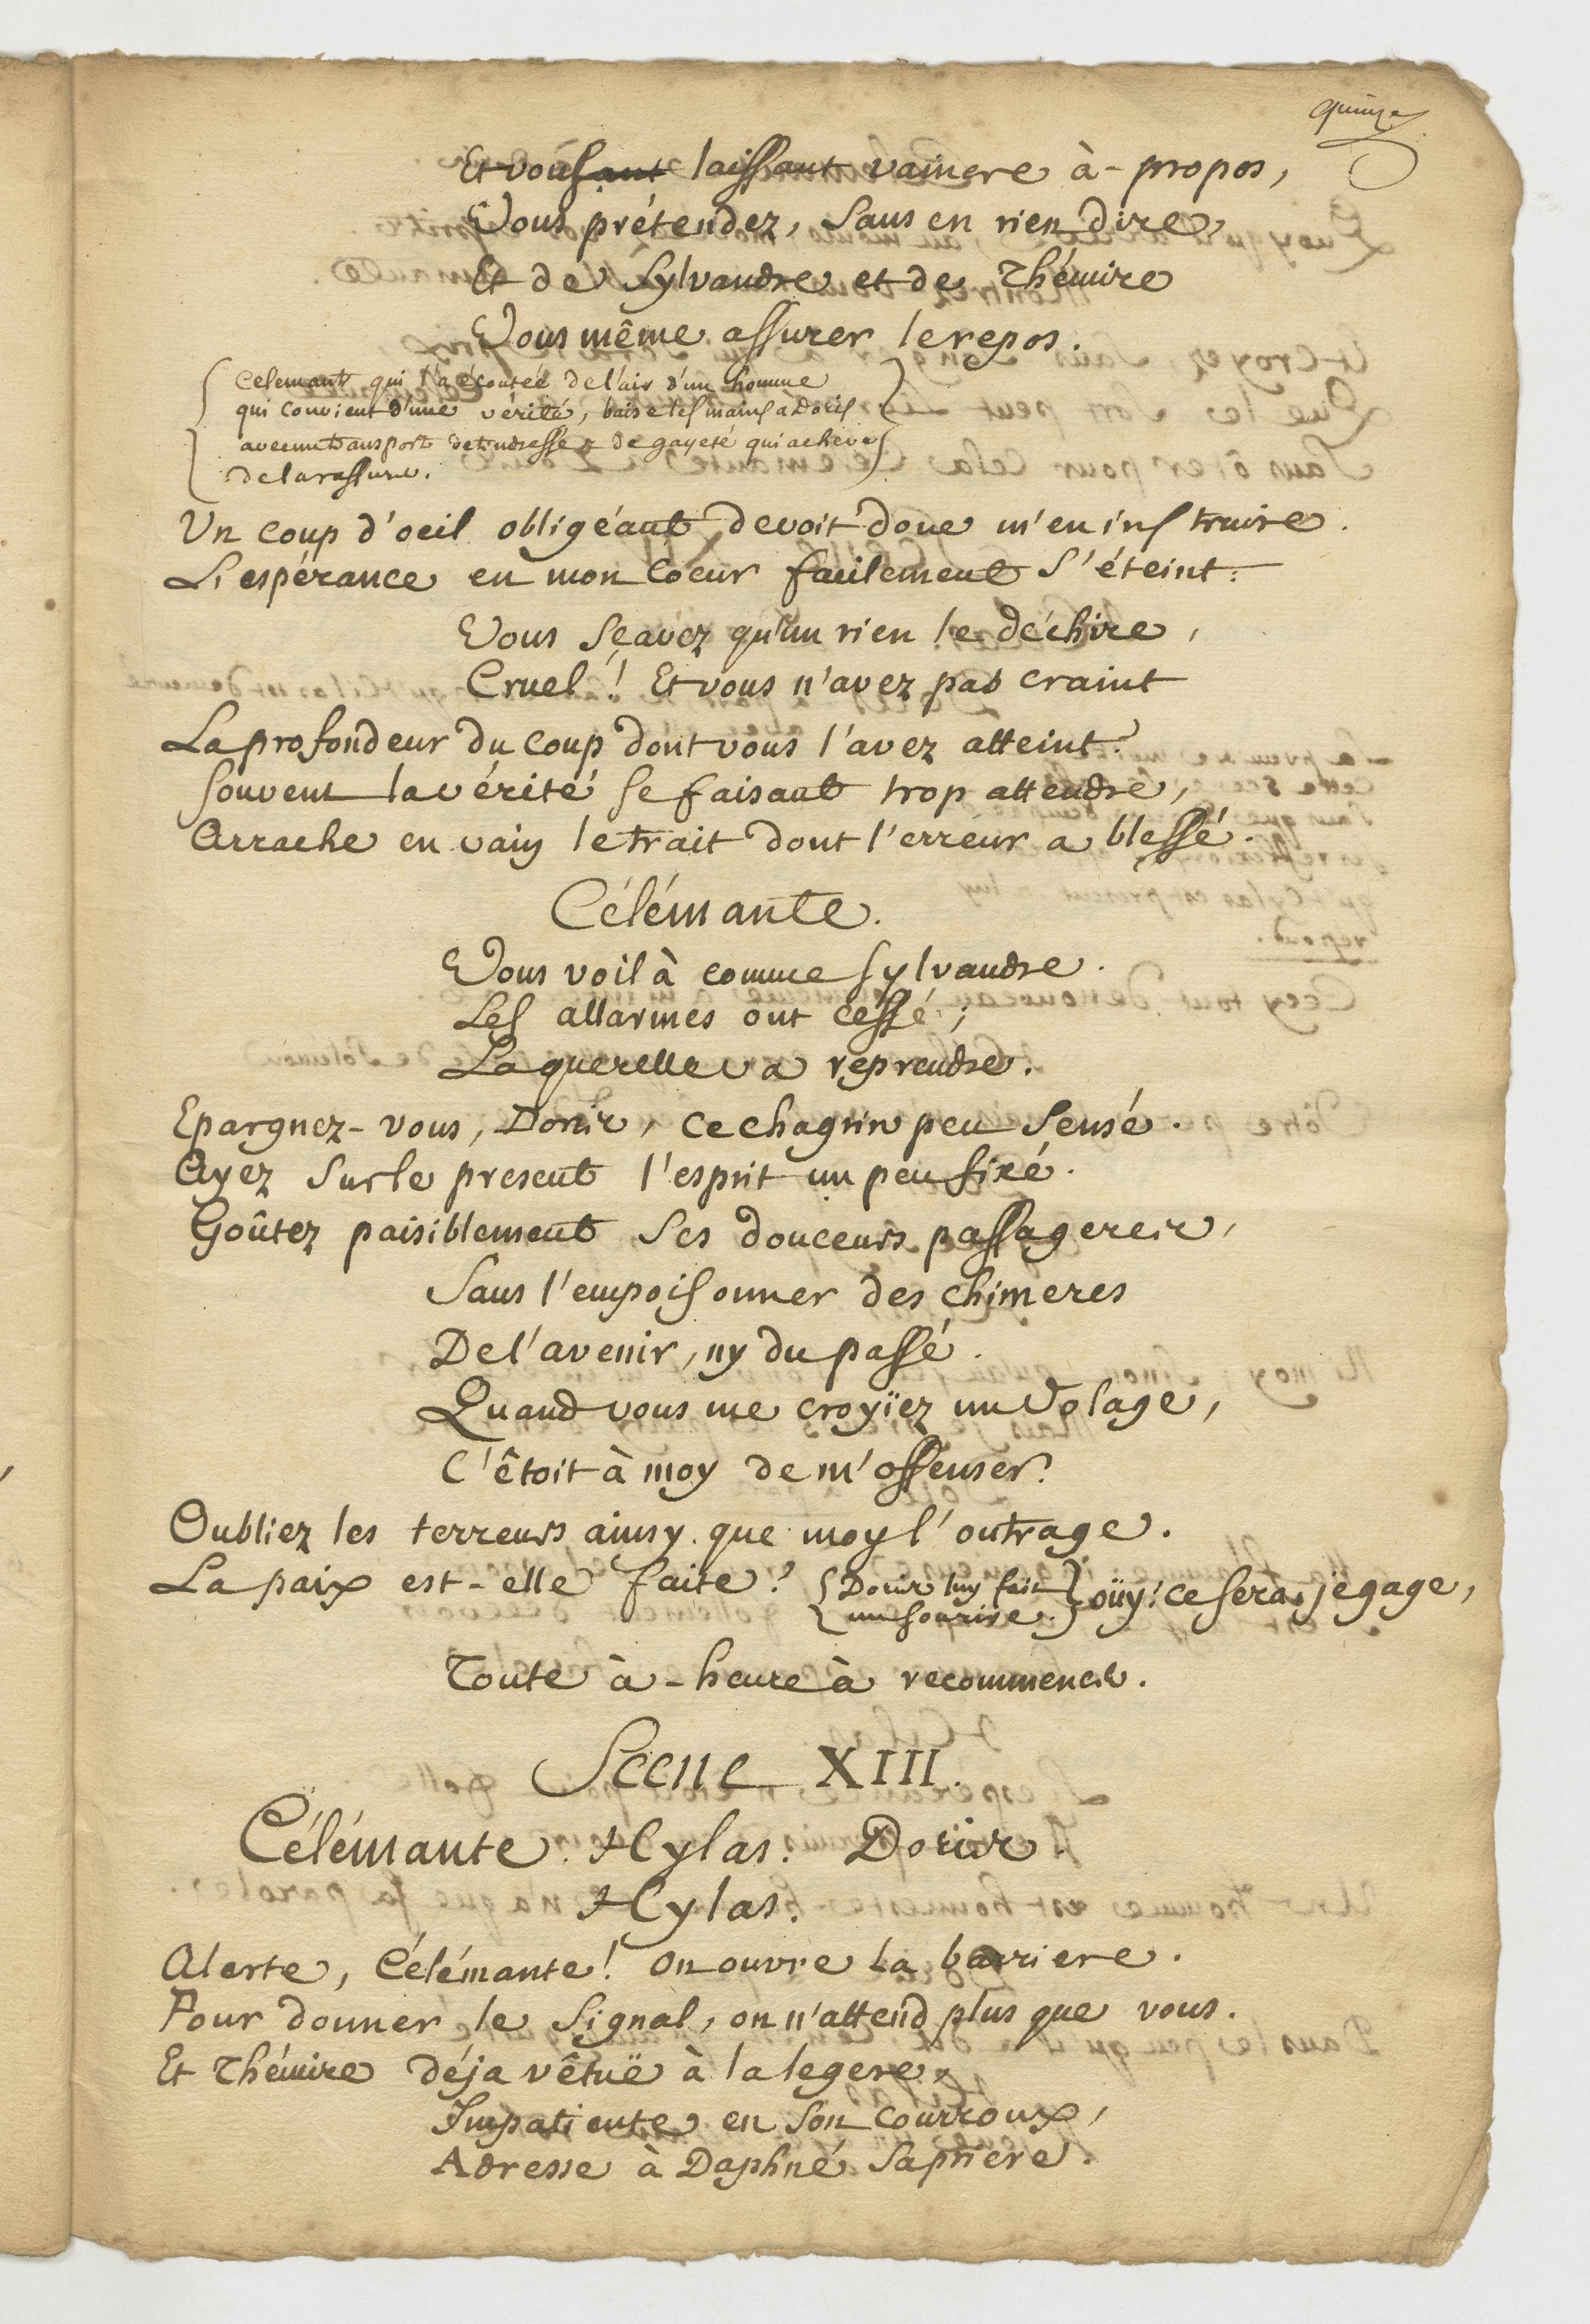 quinze
Et vous ant laissant vaincre à-propos,
Vous prétendez, sans en rien dire,
Et de Sylvandre et de Thémire
Vous même assurer le repos.
Celemante qui l'a écoutée de l'air d'un homme
qui convient d'une vérité, baise les mains a Doris
avec un transport de tendresse & de gayeté qui acheve
de la rassurer.
Un coup d'oeil obligéant devoit donc m'en instruire.
L'espérance en mon coeur facilement s'éteint:
Vous sçavez qu'un rien le déchire,
Cruel! Et vous n'avez pas craint
La profondeur du coup dont vous l'avez atteint?
Souvent la vérité se faisant trop attendre,
Arrache en vain le trait dont l'erreur a blessé.
Célémante.
Vous voilà comme Sylvandre.
Les allarmes ont cessé;
La querelle va reprendre.
Epargnez-vous, Doris, ce chagrin peu sensé.
Ayez sur le present l'esprit un peu fixé.
Goûtez paisiblement ses douceurs passageres,
Sans l'empoisonner des chimeres
De l'avenir, ny du passé.
Quand vous me croyïez un Volage,
C'êtoit à moy de m'offenser?
Oubliez les terreurs ainsy que moy l'outrage.
La paix est-elle faite? {Doris luy fait un sourire.} oüy! ce sera, je gage,
Toute à-heure à recommencer.
Scene XIII.
Célémante. Hylas. Doris.
Hylas.
Alerte, Célémante! on ouvre la barriere.
Pour donner le signal, on n'attend plus que vous.
Et Thémire déja vêtuë à la legere,
Impatiente en son courroux,
Adresse à Daphné sa priere.